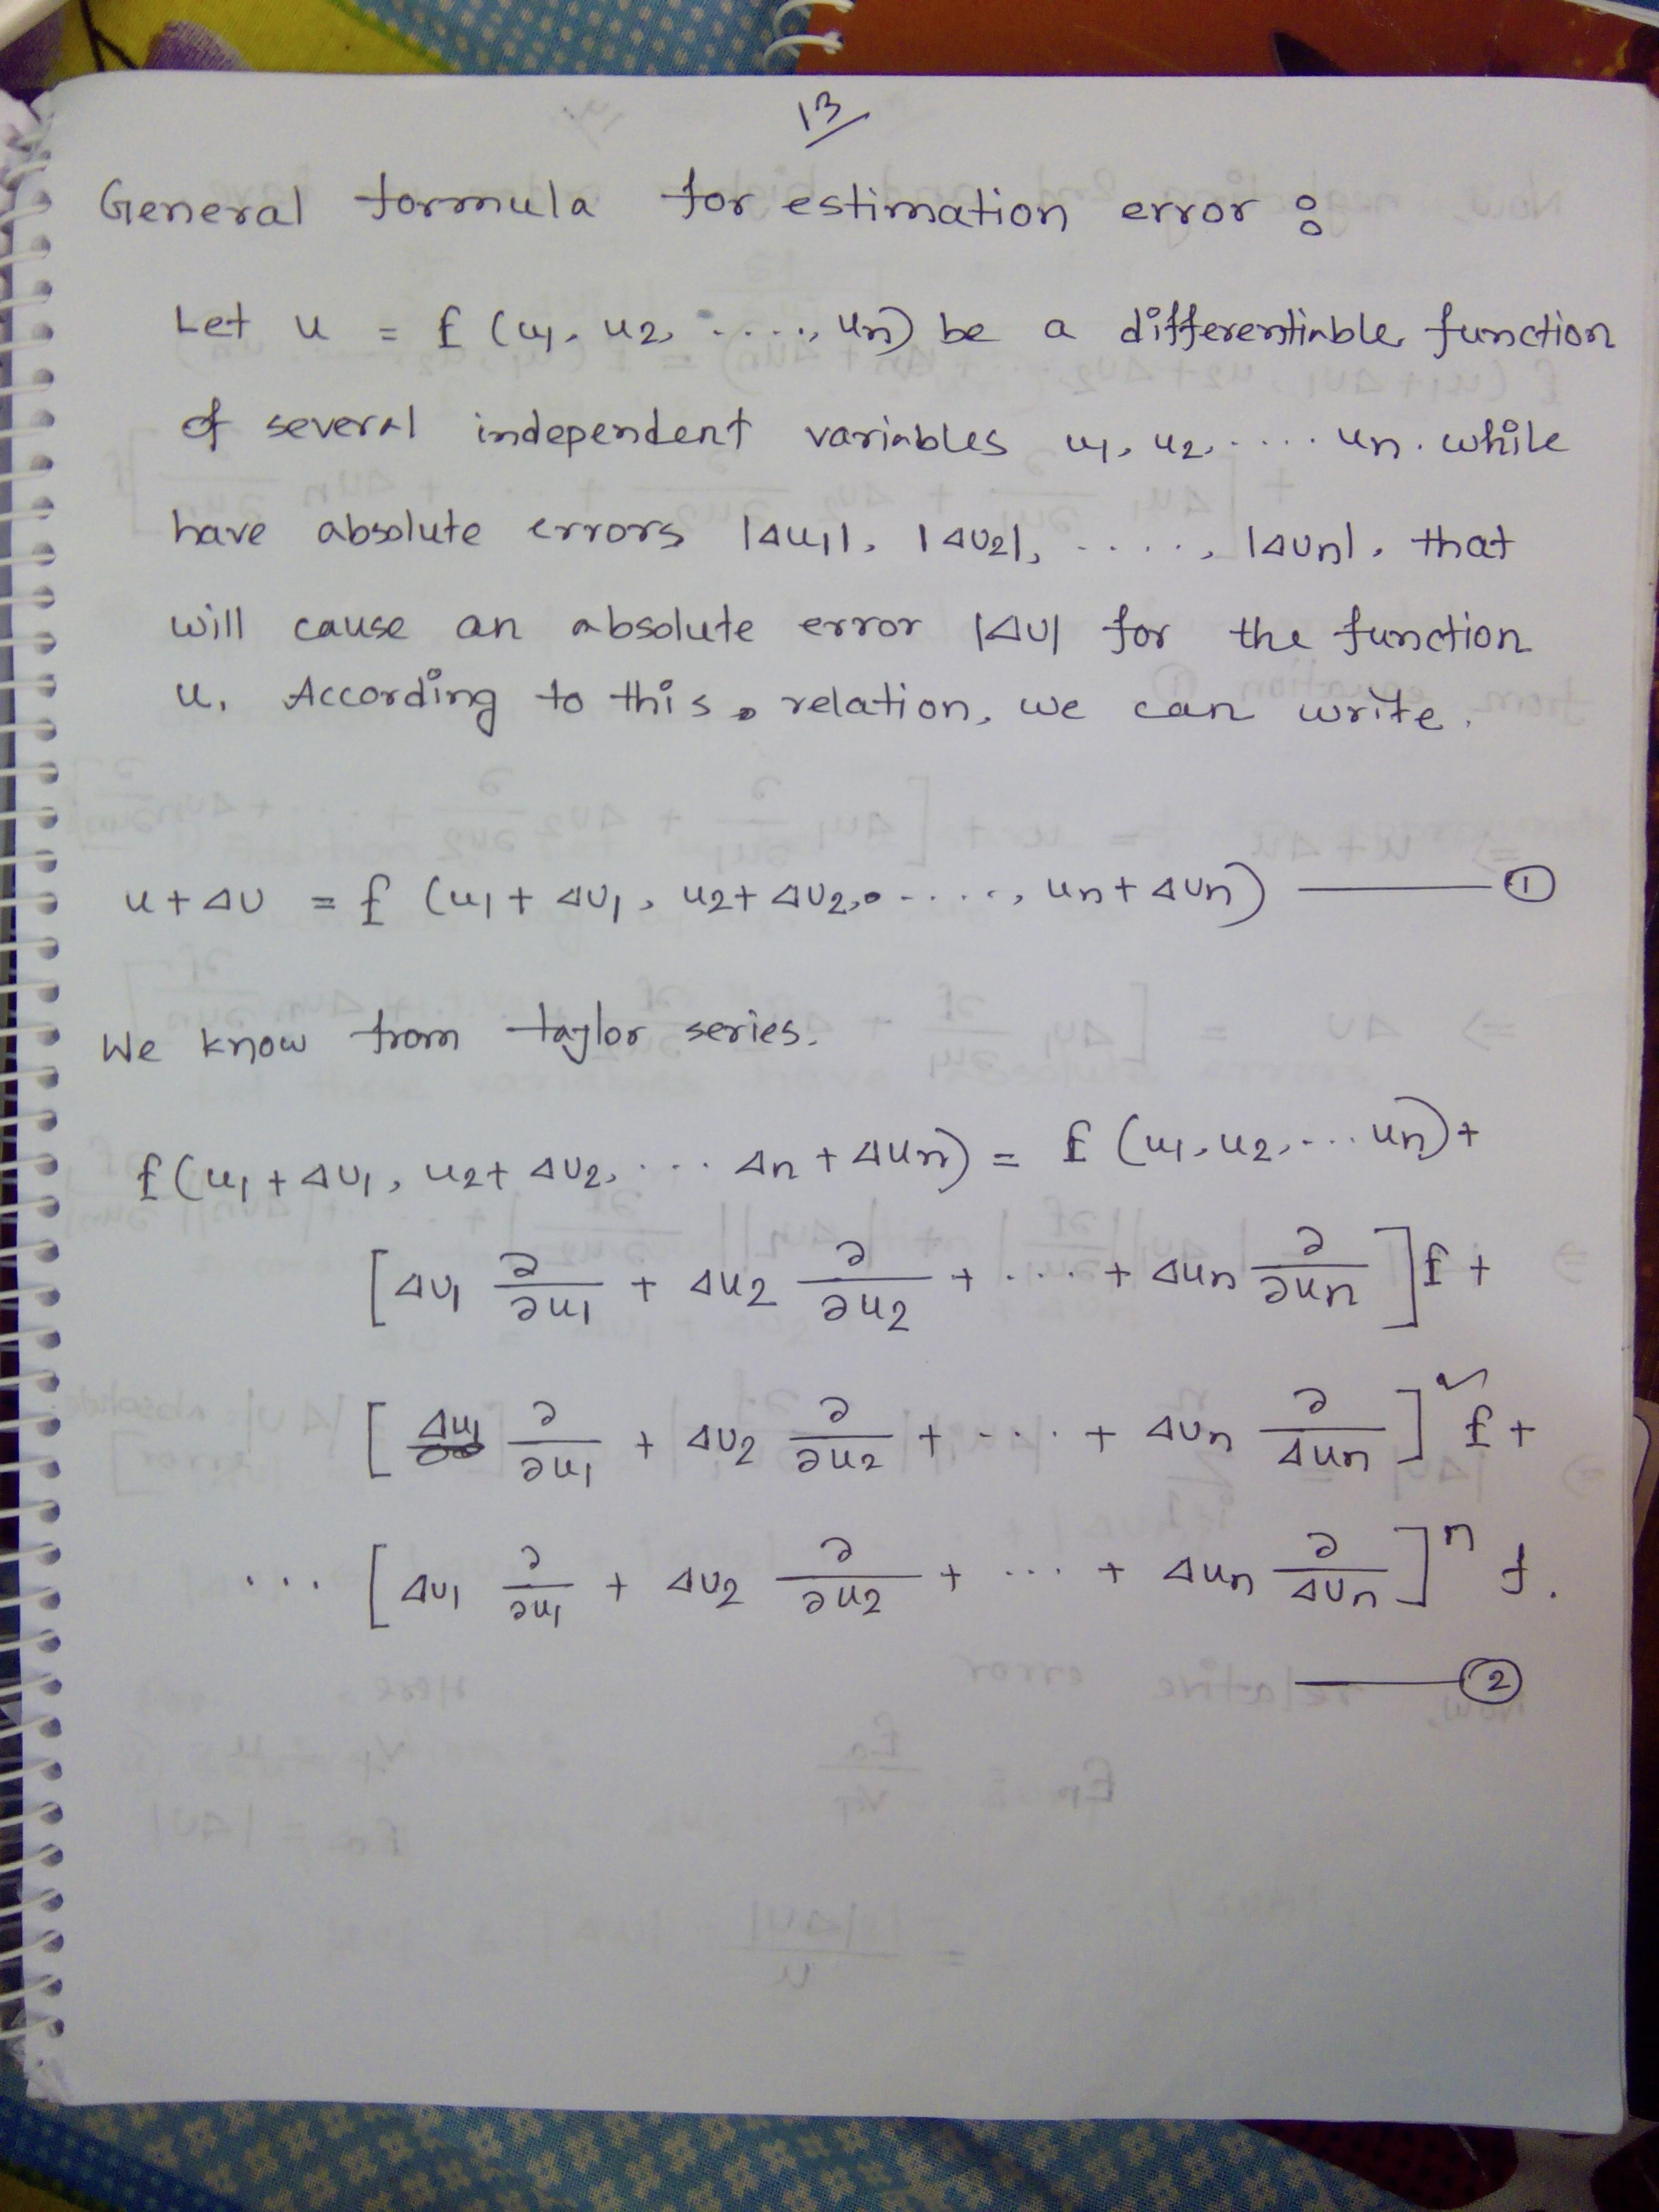 13
General formula for estimation error :
Let u = f (u1, u2, ....., un) be a differentiable function
of several independent variables u1, u2, ..... un. while
have absolute errors |Δu1|, |Δu2|, ....., |Δun|, that
will cause an absolute error |Δu| for the function
u. According to this relation, we can write.
u + Δu = f (u1 + Δu1, u2 + Δu2, ....., un + Δun) —— ①
We know from taylor series.
f(u1 + Δu1, u2 + Δu2, ... Δn + Δun) = f (u1, u2, ... un) +
[Δu1 ∂/∂u1 + Δu2 ∂/∂u2 + .... + Δun ∂/∂un] f +
[Δu1 ∂/∂u1 + Δu2 ∂/∂u2 + .... + Δun ∂/Δun]² f +
... [Δu1 ∂/∂u1 + Δu2 ∂/∂u2 + ... + Δun ∂/Δun]ⁿ f.
—— ②